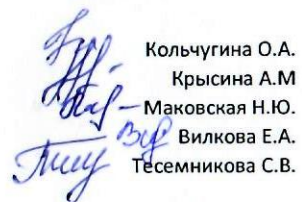 Кольчугина О.А.
Крысина А.М
Маковская Н.Ю.
Вилкова Е.А.
Тесемникова С.В.